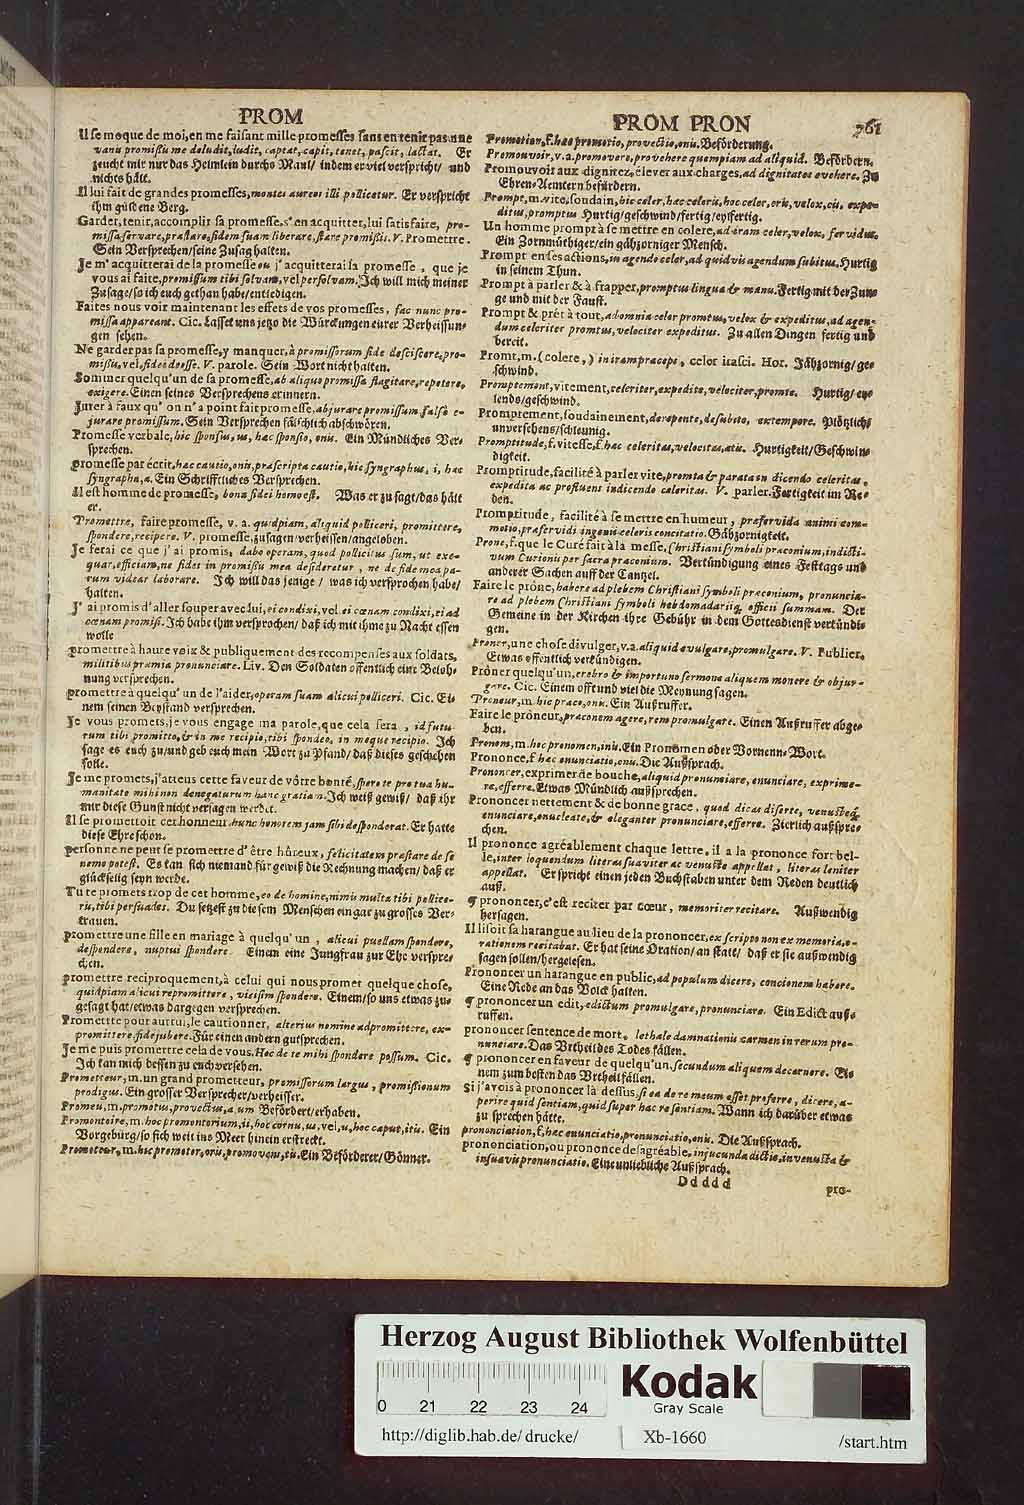 PROM
Il se moque de moi, en me faisant mille promesses sans en tenir pas une
vanis promissis me deludit, ludit, captat, capit, tenet, pascit, lactat. Er
zeucht mir nur das Helmlein durchs Maul/ indem er viel verspricht/ und
nichts hält.
Il lui fait de grandes promesses, montes aureos illi pollicetur. Er verspricht
ihm güldene Berg.
Garder, tenir, accomplir sa promesse, s'en acquitter, lui satisfaire, pro-
missa servare, præstare, fidem suam liberare, stare promissis. V. Promettre.
Sein Versprechen/ seine Zusag halten.
Je m'acquitterai de la promesse ou j'acquitterai la promesse, que je
vous ai faite, promissum tibi solvam, vel persolvam. Ich will mich meiner
Zusage/ so ich euch gethan habe/ entledigen.
Faites nous voir maintenant les effets de vos promesses, fac nunc pro-
missa appareant. Cic. Lasset uns jetzo die Würckungen eurer Verheissun-
gen sehen.
Ne garder pas sa promesse, y manquer, à promissorum fide desciscere, pro-
missis, vel fidei deesse. V. parole. Sein Wort nicht halten.
Sommer quelqu'un de sa promesse, ab aliquo promissa flagitare, repetere,
exigere. Einen seines Versprechens erinnern.
Jurer à faux qu'on n'a point fait promesse, abjurare promissum, falsò e-
jurare promissum. Sein Versprechen fälschlich abschwören.
Promesse verbale, hic sponsus, us, hæc sponsio, onis. Ein Mündliches Ver-
sprechen.
promesse par écrit, hæc cautio, onis, præscripta cautio, hic syngraphus, i, hæc
syngrapha, æ. Ein Schrifftliches Versprechen.
Il est homme de promesse, bonæ fidei homo est. Was er zusagt/ das hält
er.
Promettre, faire promesse, v. a. quidpiam, aliquid polliceri, promittere,
spondere, recipere. V. promesse, zusagen/ verheissen/ angeloben.
Je ferai ce que j'ai promis, dabo operam, quod pollicitus sum, ut exe-
quar, efficiam, ne fides in promissis mea desideretur, ne de fide mea pa-
rum videar laborare. Ich will das jenige/ was ich versprochen habe/
halten.
J'ai promis d'aller souper avec lui, ei condixi, vel ei cœnam condixi, ei ad
cœnam promisi. Ich habe ihm versprochen/ daß ich mit ihme zu Nacht essen
wolle
promettre à haute voix & publiquement des recompenses aux soldats,
militibus præmia pronunciare. Liv. Den Soldaten offentlich eine Beloh-
nung versprechen.
promettre à quelqu'un de l'aider, operam suam alicui polliceri. Cic. Ei-
nem seinen Beystand versprechen.
Je vous promets, je vous engage ma parole, que cela sera, id futu-
rum tibi promitto, & in me recipio, tibi spondeo, in meque recipio. Ich
sage es euch zu/ und geb euch mein Wort zu Pfand/ daß dieses geschehen
solle.
Je me promets, j'attens cette faveur de vôtre bonté, spero te pro tua hu-
manitate mihi non denegaturum hanc gratiam. Ich weiß gewiß/ daß ihr
mir diese Gunst nicht versagen werdet.
Il se promettoit cet honneur, hunc honorem jam sibi desponderat. Er hatte
diese Ehre schon.
personne ne peut se promettre d'être hûreux, felicitatem præstare de se
nemo potest. Es kan sich niemand für gewiß die Rechnung machen/ daß er
glückselig seyn werde.
Tu te promets trop de cet homme, eo de homine, nimis multa tibi pollice-
ris, tibi persuades. Du setzest zu diesem Menschen ein gar zu grosses Ver-
trauen.
promettre une fille en mariage à quelqu'un, alicui puellam spondere,
despondere, nuptui spondere. Einem eine Jungfrau zur Ehe verspre-
chen.
promettre reciproquement, à celui qui nous promet quelque chose,
quidpiam alicui repromittere, vicissim spondere. Einem/ so uns etwas zu-
gesagt hat/ etwas dargegen versprechen.
Promettre pour autrui, le cautionner, alterius nomine adpromittere, ex-
promittere, fidejubere. Für einen andern gutsprechen.
Je me puis promettre cela de vous. Hoc de te mihi spondere possum. Cic.
Ich kan mich dessen zu euch versehen.
Prometteur, m. un grand prometteur, promissorum largus, promissionum
prodigus. Ein grosser Versprecher/ verheisser.
Promeu, m. promotus, provectus, a um Befördert/ erhaben.
Promontoire, m. hoc promontorium, ii, hoc cornu, us, vel, u, hoc caput, itis. Ein
Vorgebürg/ so sich weit ins Meer hinein erstreckt.
Promoteur, m. hic promotor, oris, promovens, tis. Ein Beförderer/ Gönner.
PROM PRON 761
Promotion, f. hæc promotio, provectio, onis. Beförderung.
Promouvoir, v. a. promovere, provehere quempiam ad aliquid. Befördern.
Promouvoir aux dignitez, élever aux charges, ad dignitates evehere. Zu
Ehren-Aemtern befürdern.
Prompt, m. vite, soudain, hic celer, hæc celeris, hoc celer, eris, velox, cis, expe-
ditus, promptus Hurtig/ geschwind/ fertig/ eyffertig.
Un homme prompt à se mettre en colere, ad iram celer, velox, fervidus.
Ein Zornmüthiger/ ein gähzorniger Mensch.
Prompt en ses actions, in agendo celer, ad quidvis agendum subitus. Hurtig
in seinem Thun.
Prompt à parler & à frapper, promptus lingua & manu. Fertig mit der Zun-
ge und mit der Faust.
Prompt & prêt à tout, ad omnia celer promtus, velox & expeditus, ad agen-
dum celeriter promtus, velociter expeditus. Zu allen Dingen fertig und
bereit.
Promt, m. (colere,) in iram præceps, celer irasci. Hor. Jähzornig/ ge-
schwind.
Promptement, vitement, celeriter, expedite, velociter, promte. Hurtig/ ey-
lends/ geschwind.
Promptement, soudainement, derepente, desubito, extempore. Plötzlich/
unversehens/ schleunig.
Promptitude, f. vitesse, f. hæc celeritas, velocitas, atis. Hurtigkeit/ Geschwin-
digkeit.
Promptitude, facilité à parler vite, promta & parata in dicendo celeritas,
expedita ac profluens in dicendo celeritas. V. parler. Fertigkeit im Re-
den.
Promptitude, facilité à se mettre en humeur, præfervida animi com-
motio, præfervidi ingenii celeris concitatio. Gähzornigkeit.
Prone, f. que le Curé fait à la messe. Christiani symboli præconium, indicti-
vum Curionis per sacra præconium. Verkündigung eines Festtags und
anderer Sachen auff der Cantzel.
Faire le prône, habere ad plebem Christiani symboli præconium, pronuncia-
re ad plebem Christiani symboli hebdomadariiq; officii summam. Der
Gemeine in der Kirchen ihre Gebühr in dem Gottesdienst verkündi-
gen.
Prôner, une chose divulger, v. a. aliquid evulgare, promulgare. V. Publier.
Etwas offentlich verkündigen.
Prôner quelqu'un, crebro & importuno sermone aliquem monere & objur-
gare. Cic. Einem offt und viel die Meynung sagen.
Prôneur, m. hic præco, onis. Ein Außruffer.
Faire le prôneur, præconem agere, rem promulgare. Einen Außruffer abge-
ben.
Pronom, m. hoc pronomen, inis. Ein Pronomen oder Vornenn-Wort.
Prononce, f. hæc enunciatio, onis. Die Außsprach.
Prononcer, exprimer de bouche, aliquid pronunciare, enunciare, exprime-
re, efferre. Etwas Mündlich außsprechen.
Prononcer nettement & de bonne grace, quod dicas diserte, venusteq;
enunciare, enucleate, & eleganter pronunciare, efferre. Zierlich außspre-
chen.
Il prononce agréablement chaque lettre, il a la prononce fort bel-
le, inter loquendum literas suaviter ac venuste appellat, literas leniter
appellat. Er spricht einen jeden Buchstaben unter dem Reden deutlich
auß.
¶ prononcer, c'est reciter par cœur, memoriter recitare. Außwendig
hersagen.
Il lisoit sa harangue au lieu de la prononcer, ex scripto non ex memoria, o-
rationem recitabat. Er hat seine Oration/ an statt/ daß er sie außwendig
sagen sollen/ hergelesen.
Prononcer un harangue en public, ad populum dicere, concionem habere.
Eine Rede an das Volck halten.
¶ prononcer un edit, edictum promulgare, pronunciare. Ein Edict auß-
ruffen.
prononcer sentence de mort, lethale damnationis carmen in rerum pro-
nunciare. Das Urtheil des Todes fällen.
¶ prononcer en faveur de quelqu'un, secundum aliquem decernere. Ei-
nem zum besten das Urtheil fällen.
Si j'avois à prononcer là dessus, si ea de re meum esset proferre, dicere, a-
perire quid sentiam, quid super hac re sentiam. Wann ich darüber etwas
zu sprechen hätte.
prononciation, f. hæc enunciatio, pronunciatio, onis. Die Außsprach.
prononciation, ou prononce desagréable, injucunda dictio, invenusta &
insuavis pronunciatio. Eine unliebliche Außsprach.
Ddddd
pro-
Herzog August Bibliothek Wolfenbüttel
Kodak
Gray Scale
0 21 22 23 24
http://diglib.hab.de/drucke/ Xb-1660 /start.htm